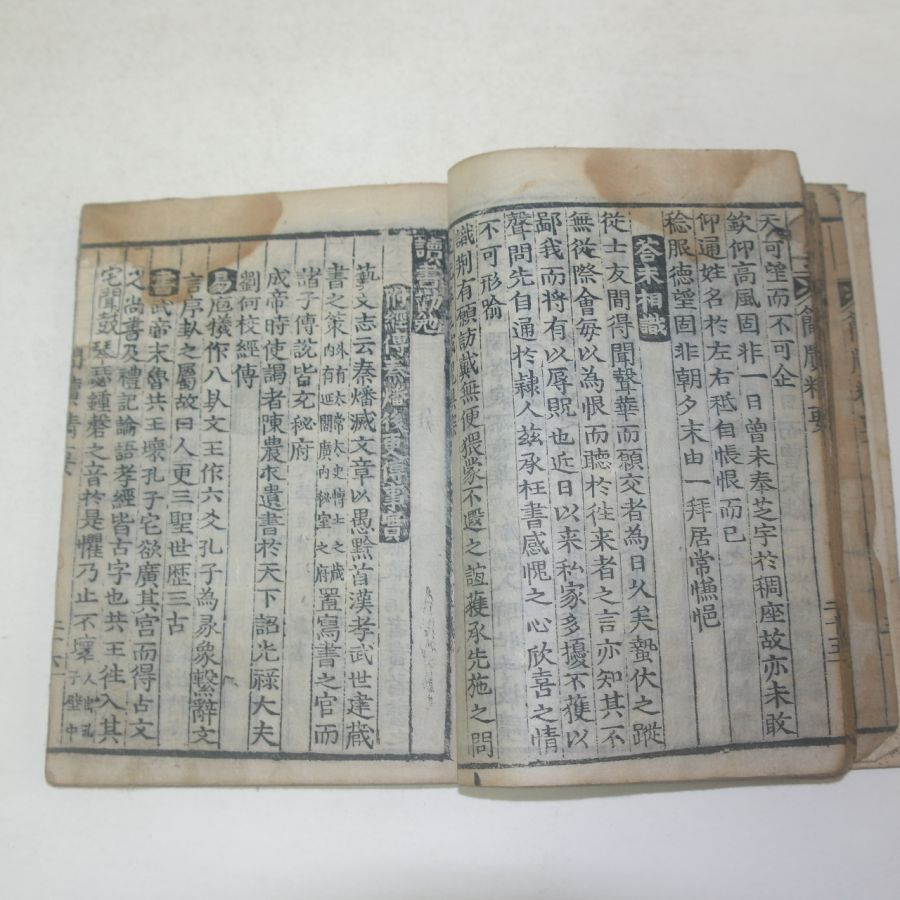 簡牘精要
二十五
天可望而不可企
欽仰高風固非一日曾未奉芝字於稠座故亦未敢
仰通姓名於左右秪自悵恨而已
稔服德望固非朝夕末由一拜居常慊悒
答未相識
從士友間得聞聲華而願交者為日久矣蟄伏之蹤
無從際會每以為恨而聽於往來者之言亦知其不
鄙我而将有以辱貺也近日以来私家多擾不獲以
聲聞先自通於隷人茲承枉書感愧之心欣喜之情
不可形喻
識荆有願訪戴無便猥蒙不遐之誼獲承先施之問
讀書
附經傳秦燔後更傳事實
藝文志云秦燔滅文章以愚黔首漢孝武世建蔵
書之策外有太常太史博士之蔵内有延閣廣内秘室之府置寫書之官而
諸子傳說皆充秘府
成帝時使謁者陳農求遺書於天下詔光祿大夫
劉向校經傳
易庖犧作八卦文王作六爻孔子為彖象繫辭文
言序卦之屬故曰人更三聖世歷三古
書武帝末魯共王壞孔子宅欲廣其宫而得古文
之尚書及禮記論語孝經皆古字也共王徃入其
宅聞鼓琴瑟鍾磬之音於是懼乃止不壞